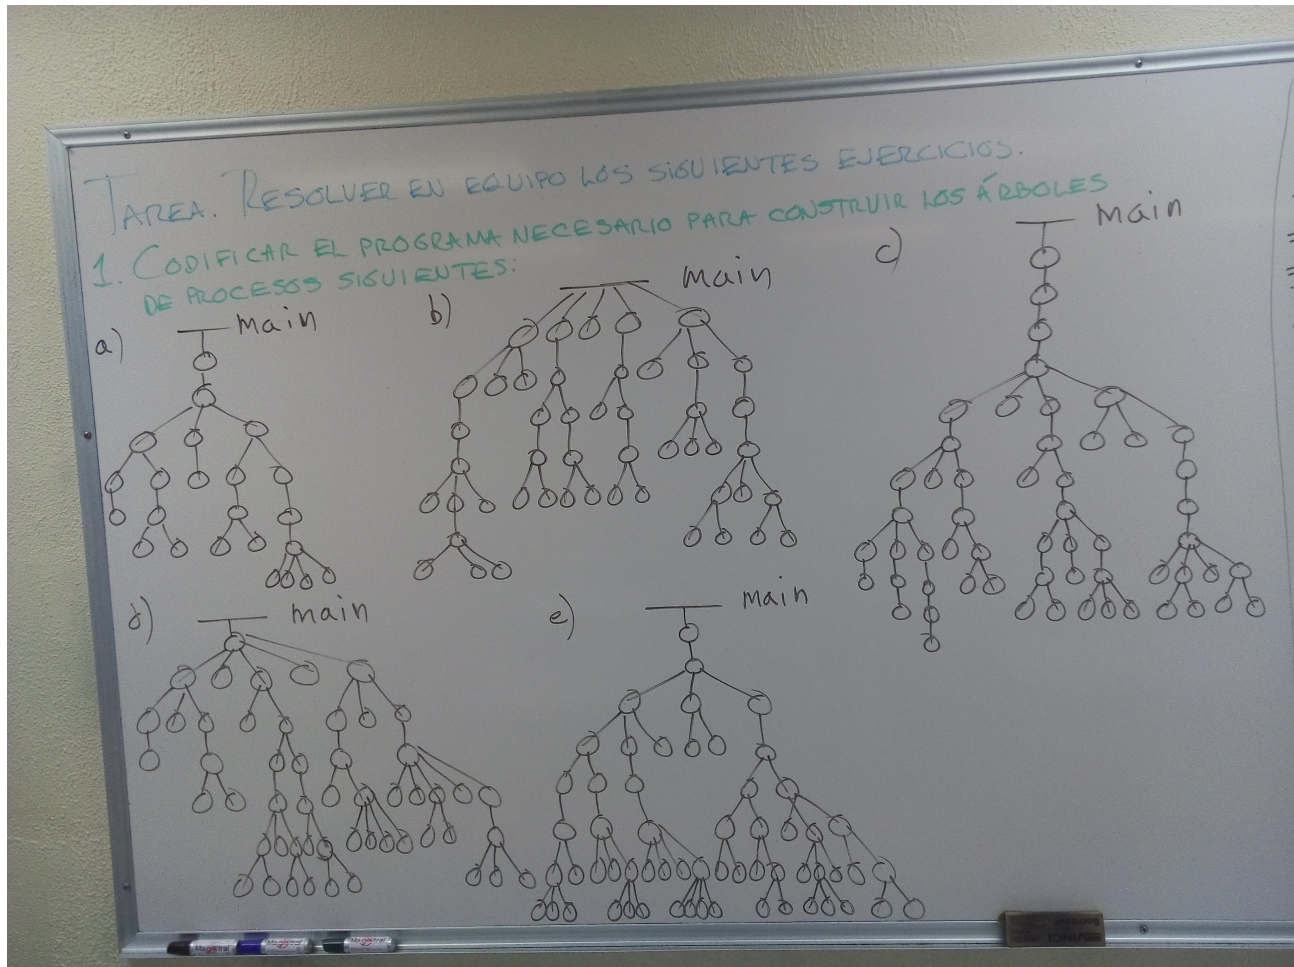 TAREA. RESOLVER EN EQUIPO LOS SIGUIENTES EJERCICIOS.
1. CODIFICAR EL PROGRAMA NECESARIO PARA CONSTRUIR LOS ÁRBOLES
DE PROCESOS SIGUIENTES:
a) main
b) main
c) main
d) main
e) main
Magistral
Magistral
Magistral